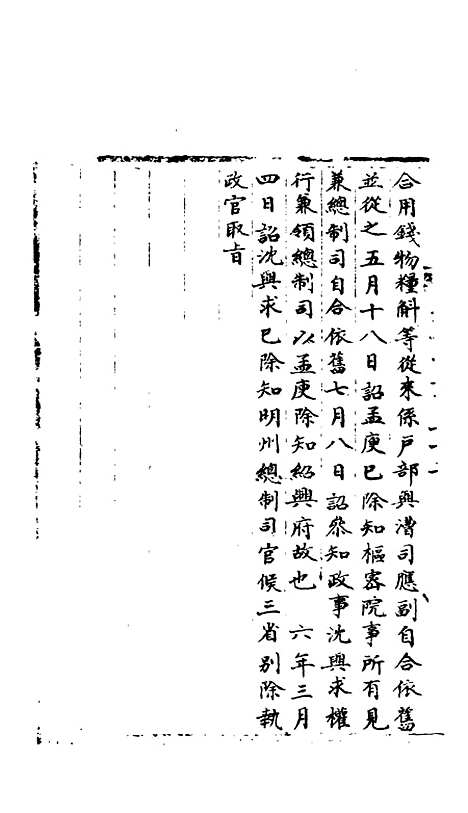 合用錢物糧斛等從來係戸部與漕司應副自合依舊
並從之五月十八日詔孟庾已除知樞宻院事所有見
兼總制司自合依舊七月八日詔叅知政事沈與求權
行兼領總制司以孟庾除知紹興府故也　六年三月
四日詔沈與求已除知明州總制司官候三省别除執
政官取旨